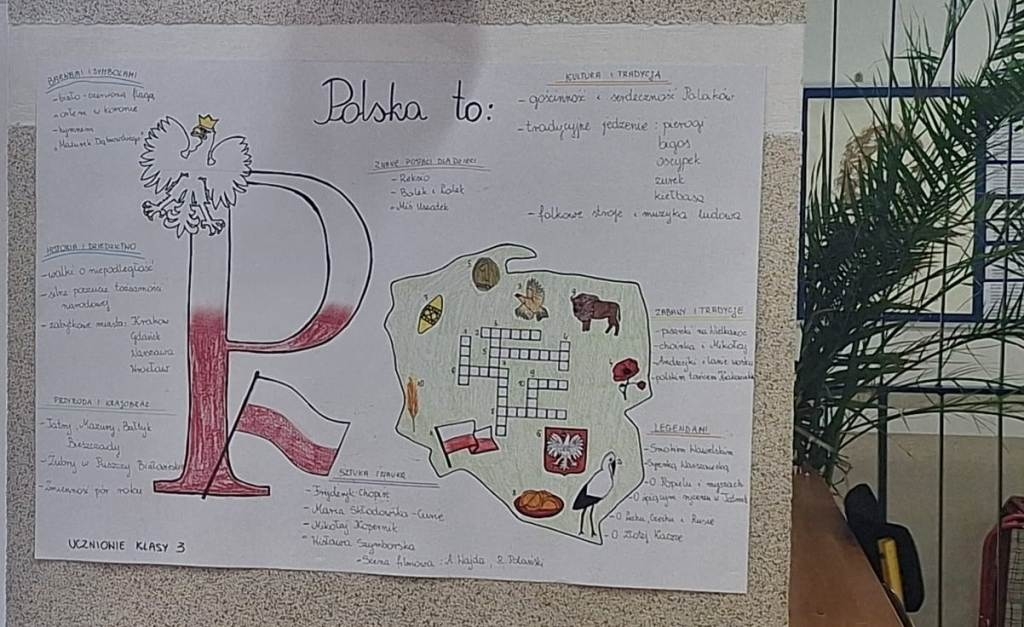 Polska to:
BARWAMI I SYMBOLAMI
- biało-czerwoną flagą
- orłem w koronie
- hymnem
"Mazurek Dąbrowskiego"
ZNANE POSTACI DLA DZIECI
- Reksio
- Bolek i Lolek
- Miś Uszatek
KULTURA I TRADYCJA
- gościnność i serdeczność Polaków
- tradycyjne jedzenie: pierogi
bigos
oscypek
żurek
kiełbasa
- folkowe stroje i muzyka ludowa
HISTORIA I DZIEDZICTWO
- walki o niepodległość
- silne poczucie tożsamości
narodowej
- zabytkowe miasta: Kraków
Gdańsk
Warszawa
Wrocław
ZABAWY I TRADYCJE
- pisanki na Wielkanoc
- choinka i Mikołaj
- Andrzejki i lanie wosku
- polskim tańcem
PRZYRODA I KRAJOBRAZ
- Tatry, Mazury, Bałtyk
Bieszczady
- Żubry w Puszczy
- Zmienność pór roku
LEGENDAMI
- Smokiem Wawelskim
- Syrenką Warszawską
- O Popielu i myszach
- O śpiącym rycerzu w Tatrach
- O Lechu, Czechu i Rusie
- O Złotej Kaczce
SZTUKA I NAUKA
- Fryderyk Chopin
- Maria Skłodowska-Curie
- Mikołaj Kopernik
- Wisława Szymborska
- Scena filmowa: A. Wajda, R. Polański
UCZNIOWIE KLASY 3